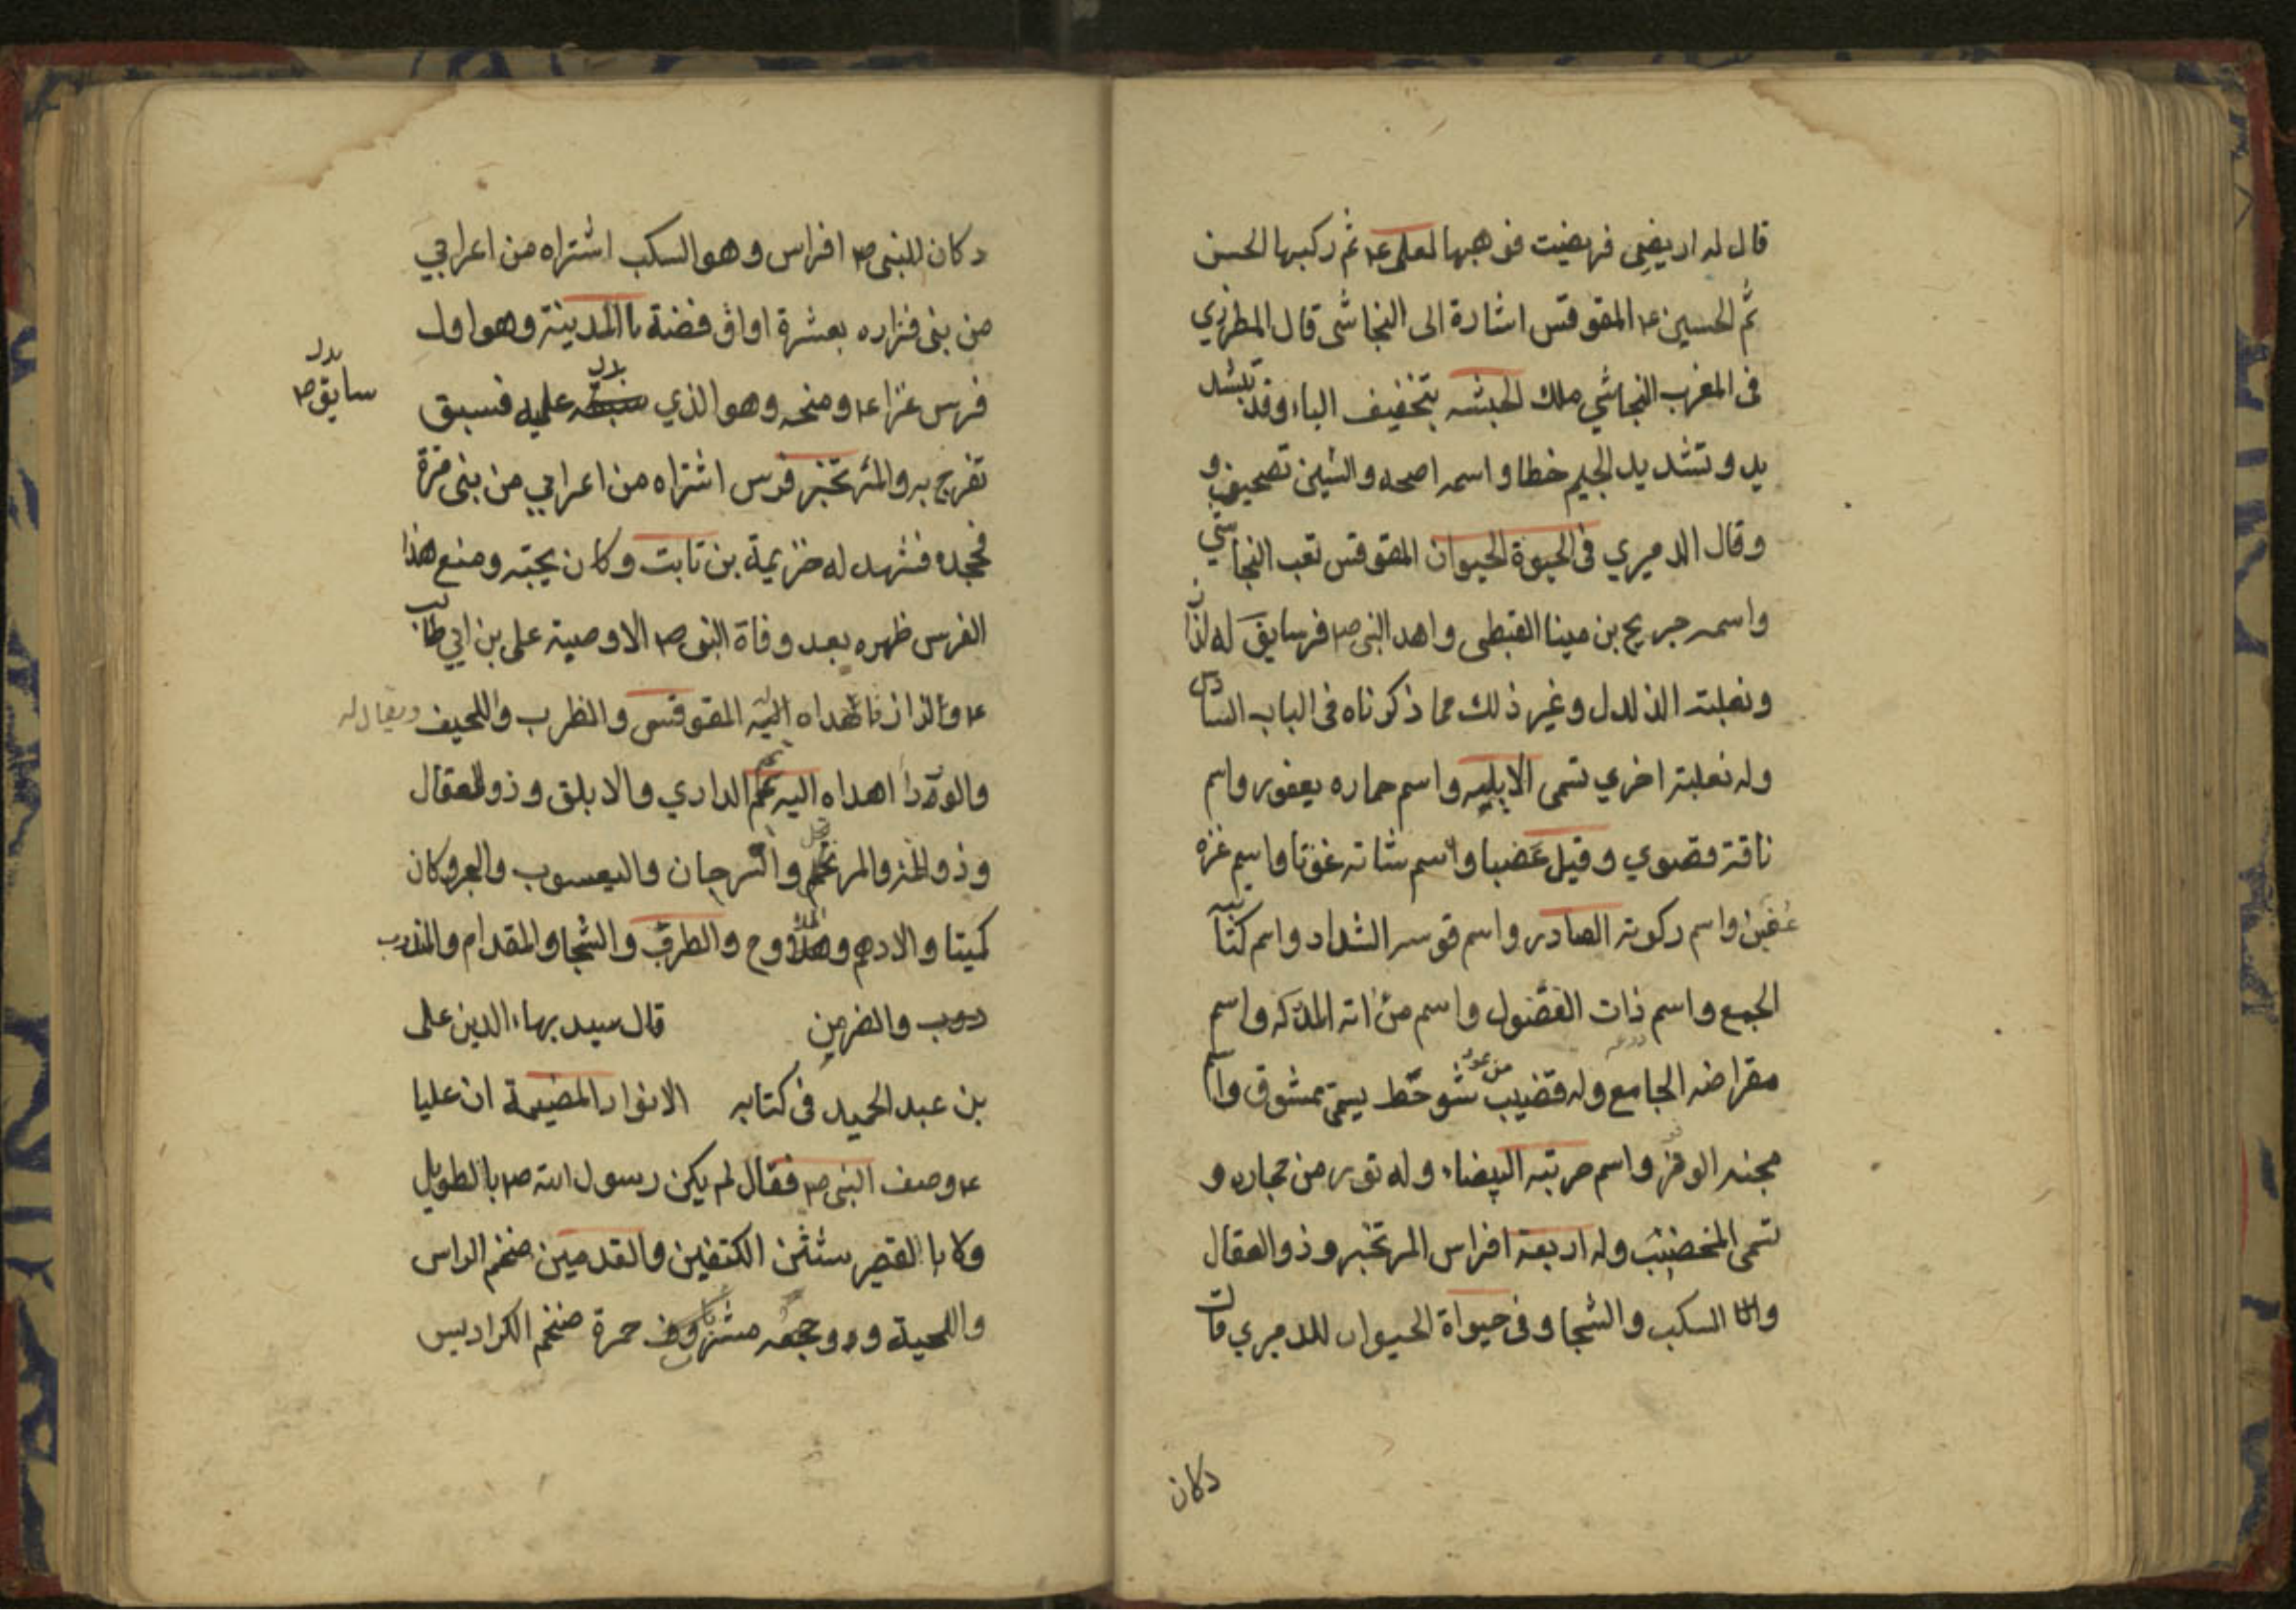 قال له اربضي فربضت فوهبها لعلي ع۴ ثم ركبها الحسن
ثم الحسين ع۴ المقوقس اشارة الى النجاشى قال المطرزي
فى المغرب النجاشي ملك الحبشه بتخفيف الياء وقد تشد
يد وتشديد الجيم خطا واسمه اصحه والشين تصحيف و
وقال الدميري فى الحيوة الحيوان المقوقس لقب النجاشي
واسمه جريح بن مينا القبطى واهد النبى ص۴ فرسا يق له لزاز
وبغلته الدلدل وغير ذلك مما ذكرناه فى الباب السادس
وله بغلة اخري تسمى الابليه واسم حماره يعفور واسم
ناقته قصوي وقيل عضبا واسم شاته غوثا واسم عنزه
عفين واسم ركوته الصادر واسم قوسه الشداد واسم كنانته
الجمع واسم ذات الفضول واسم مرٰاته المدركه واسم
درعه
مقراضه الجامع وله قضيب من عود شوحط يسمى ممشوق واسم
مجنه الوفر واسم حربته البيضاء وله تور من حجاره و
تسمى المخضب وله اربعة افراس المرتجز وذو العقال
والسكب والشجا وفى حيواة الحيوان للدميري قال
دكان
دكان للنبى ص۴ افراس وهو السكب اشتراه من اعرابي
من بنى فزاره بعشرة اواق فضة باالمدينة وهو اول
فرس غزا ع۴ ومنحه وهو الذي سبقه عليه فسبق
بدل
سابق ص۴
تفرج به والمرتجز فرس اشتراه من اعرابي من بنى مرة
فجحده فشهد له خزيمة بن ثابت وكان يحبه ومنع هذا
الفرس ظهره بعد وفاة النبى ص۴ الا وصية على بن ابي طالب
ع۴ والزاز فاهداه اليه المقوقس والظرب واللحيف ويقال له
والورد اهداه اليه تميم الداري والابلق وذو العقال
وذو اللمة والمرتجل والسرجان واليعسوب والبحر وكان
كميتا والادهم والملاوح والطرف والشجا والمقدام والمندوب
دوب والضرمن قال سيد بهاء الدين على
بن عبد الحميد فى كتابه الانوار المضيئة ان عليا
ع۴ وصف النبى ص۴ فقال لم يكن رسول الله ص۴ باالطويل
ولا باالقصير شثن الكتفين والقدمين ضخم الراس
واللحية ووجهه مشروف حمرة ضخم الكراديس